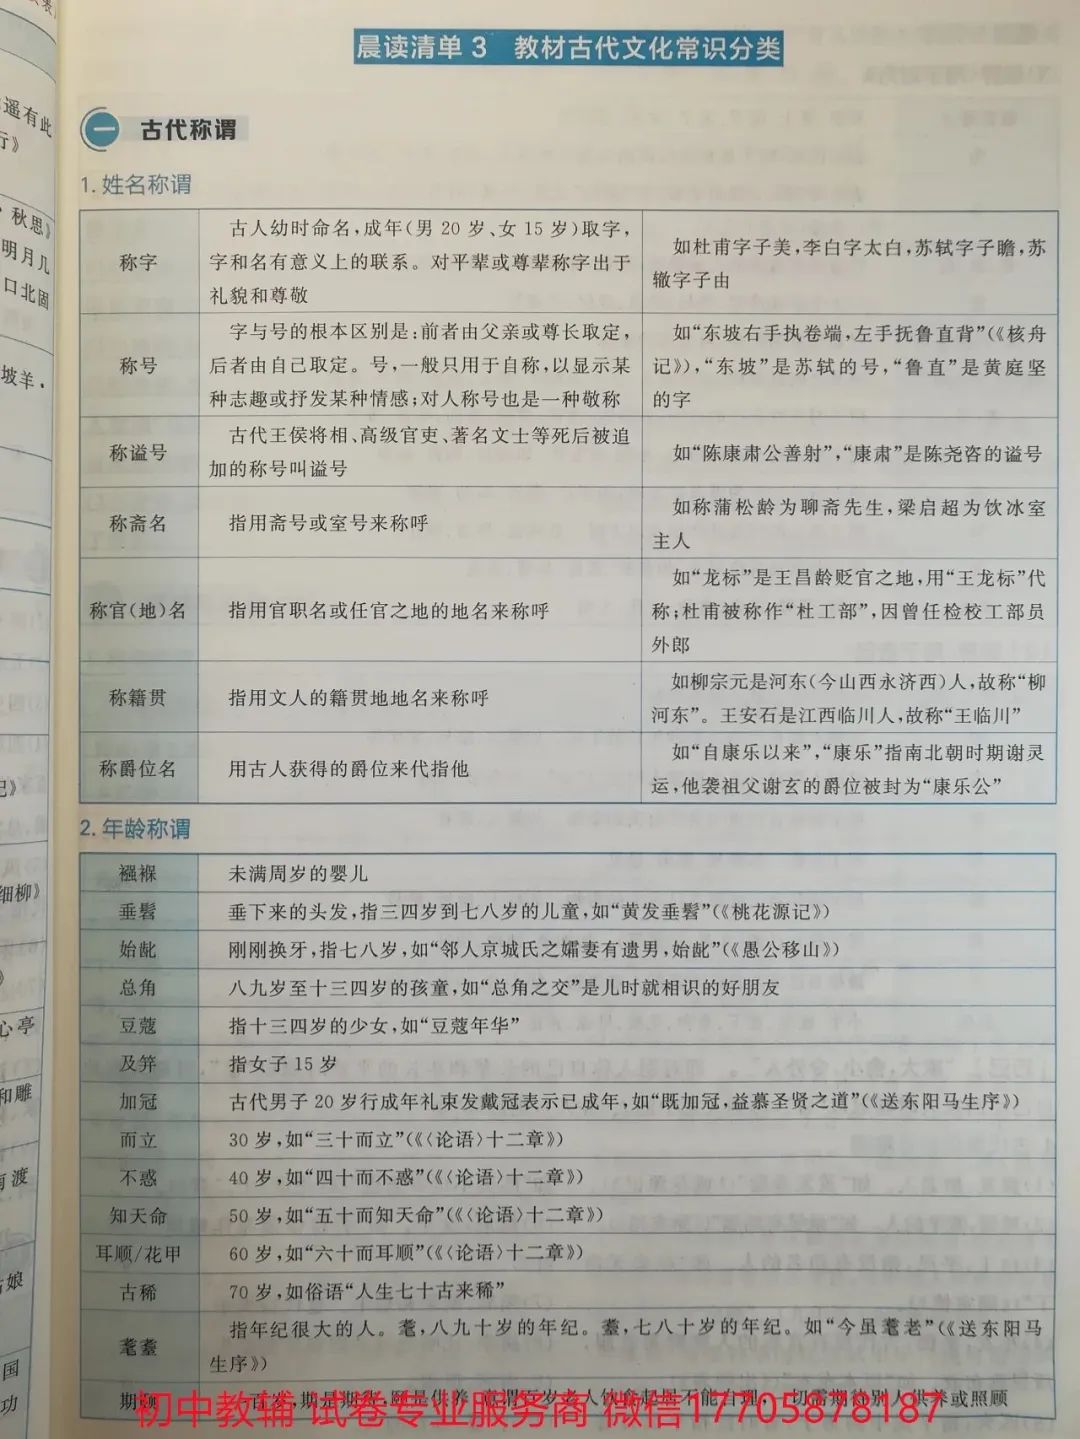 晨读清单 3 教材古代文化常识分类
一 古代称谓
1. 姓名称谓
称字
古人幼时命名，成年（男 20 岁、女 15 岁）取字，
字和名有意义上的联系。对平辈或尊辈称字出于
礼貌和尊敬
如杜甫字子美，李白字太白，苏轼字子瞻，苏
辙字子由
称号
字与号的根本区别是：前者由父亲或尊长取定，
后者由自己取定。号，一般只用于自称，以显示某
种志趣或抒发某种情感；对人称号也是一种敬称
如“东坡右手执卷端，左手抚鲁直背”（《核舟
记》），“东坡”是苏轼的号，“鲁直”是黄庭坚
的字
称谥号
古代王侯将相、高级官吏、著名文士等死后被追
加的称号叫谥号
如“陈康肃公善射”，“康肃”是陈尧咨的谥号
称斋名
指用斋号或室号来称呼
如称蒲松龄为聊斋先生，梁启超为饮冰室
主人
称官（地）名
指用官职名或任官之地的地名来称呼
如“龙标”是王昌龄贬官之地，用“王龙标”代
称；杜甫被称作“杜工部”，因曾任检校工部员
外郎
称籍贯
指用文人的籍贯地地名来称呼
如柳宗元是河东（今山西永济西）人，故称“柳
河东”。王安石是江西临川人，故称“王临川”
称爵位名
用古人获得的爵位来代指他
如“自康乐以来”，“康乐”指南北朝时期谢灵
运，他袭祖父谢玄的爵位被封为“康乐公”
2. 年龄称谓
襁褓 未满周岁的婴儿
垂髫 垂下来的头发，指三四岁到七八岁的儿童，如“黄发垂髫”（《桃花源记》）
始龀 刚刚换牙，指七八岁，如“邻人京城氏之孀妻有遗男，始龀”（《愚公移山》）
总角 八九岁至十三四岁的孩童，如“总角之交”是儿时就相识的好朋友
豆蔻 指十三四岁的少女，如“豆蔻年华”
及笄 指女子 15 岁
加冠 古代男子 20 岁行成年礼束发戴冠表示已成年，如“既加冠，益慕圣贤之道”（《送东阳马生序》）
而立 30 岁，如“三十而立”（《〈论语〉十二章》）
不惑 40 岁，如“四十而不惑”（《〈论语〉十二章》）
知天命 50 岁，如“五十而知天命”（《〈论语〉十二章》）
耳顺/花甲 60 岁，如“六十而耳顺”（《〈论语〉十二章》）
古稀 70 岁，如俗语“人生七十古来稀”
耄耋
指年纪很大的人。耄，八九十岁的年纪。耋，七八十岁的年纪。如“今虽耄老”（《送东阳马
生序》）
期颐 一百岁，期是期待，颐是供养，意谓百岁老人饮食起居不能自理，一切需期待别人供养或照顾
初中教辅 试卷专业服务商 微信17705878187
遥有此
行》
秋思》
明月几
口北固
坡羊·
记》
细柳》
心亭
和雕
南渡
姑娘
国
功